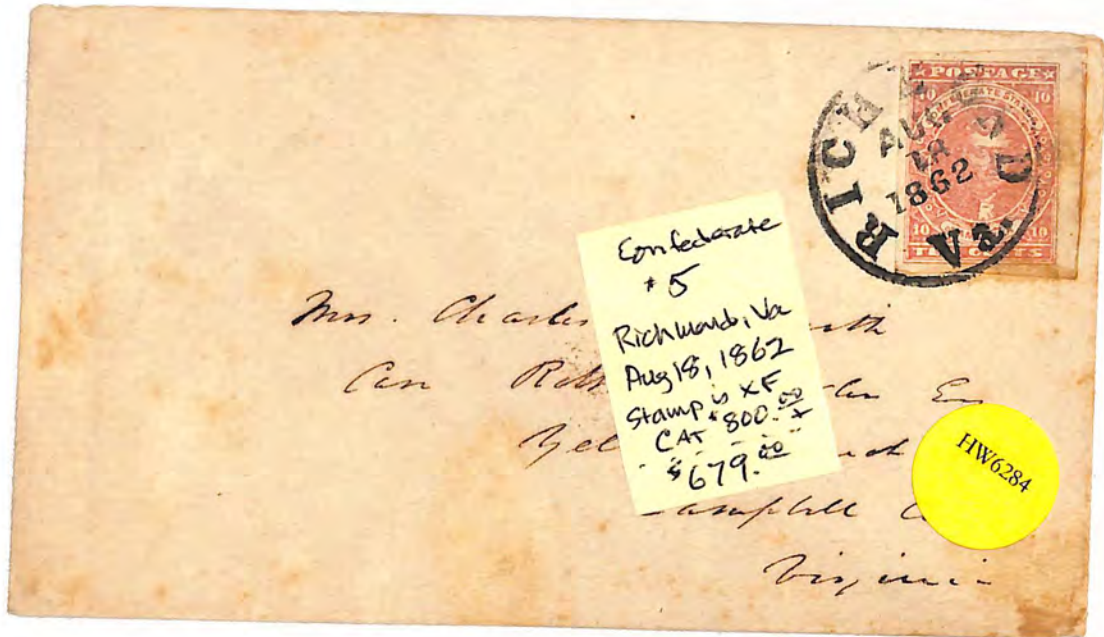 POSTAGE
10 10
RICHMOND Va.
AUG
18
1862
10 10
TEN CENTS
Confederate
#5
Richmond, Va
Aug 18, 1862
Stamp is XF
CAT $800.00 +
$679.00
HW6284
Mrs. Charles
Care
Campbell
Virginia